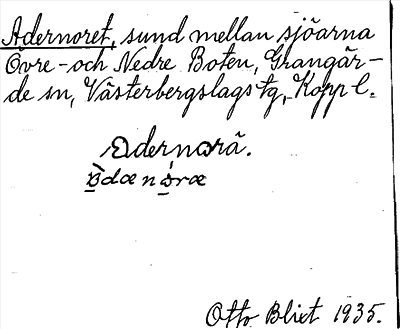 Adernoret, sund mellan sjöarna
Övre- och Nedre Boten, Grangär-
de sn, Västerbergslags tg, Kopp l.
Adernorä.
òdænòræ
Otto Blixt 1935.